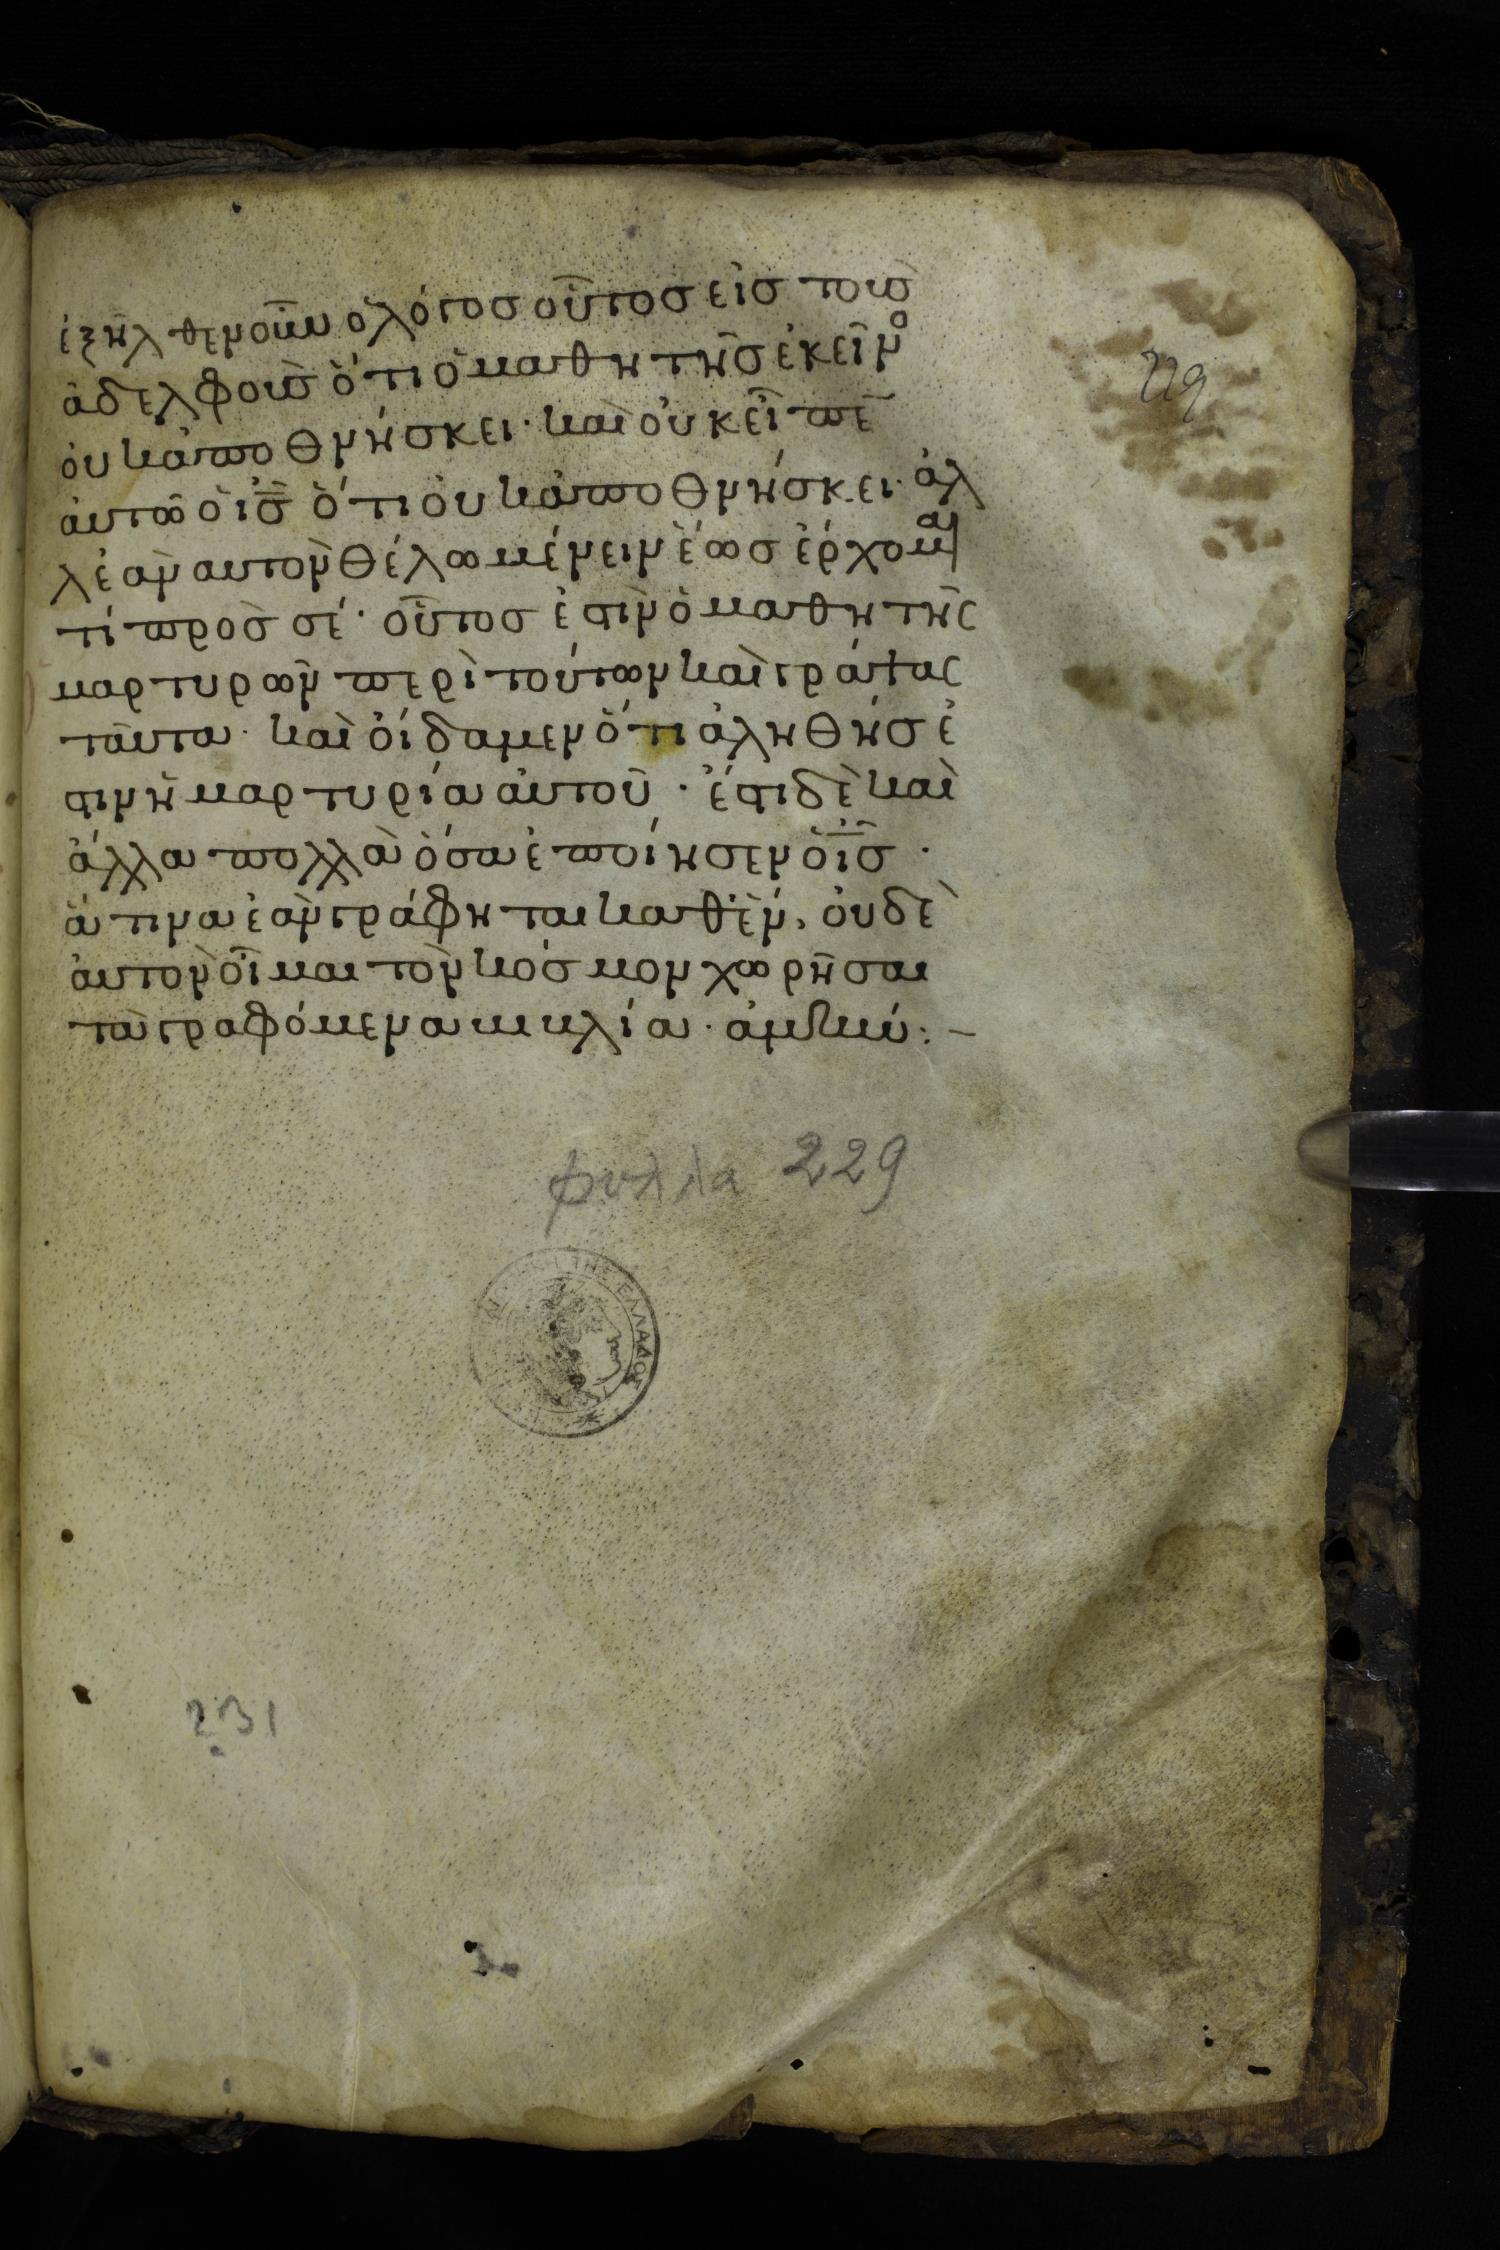 ἐξῆλθεν οὖν ὁ λόγος οὗτος εἰς τοὺς
ἀδελφοὺς ὅτι ὁ μαθητὴς ἐκεῖνο
οὐκ ἀποθνήσκει· καὶ οὐκ εἶπε
ἀυτῶ ὁ ις̅ ὅτι οὐκ ἀποθνήσκει· ἀλ
λ ἐὰν αυτὸν θέλω μένειν ἕως ἔρχομαι
τί πρὸς σέ· οὗτος ἐστὶν ὁ μαθητὴς
μαρτυρῶν περὶ τούτων καὶ γράψας
ταῦτα· καὶ οἴδαμεν ὅτι ἀληθής ἐ
στιν ἡ μαρτυρία ἀυτοῦ· ἔστι δὲ καὶ
ἄλλα πολλὰ ὅσα ἐποίησεν ὁ ις̅·
ἅτινα ἐὰν γράφηται καθ ἓν, οὐδὲ
ἀυτὸν οἶμαι τὸν κόσμον χωρῆσαι
τὰ γραφόμενα βιβλία· ἀμήν:–
229
φυλλα 229
ΤΗΣ ΕΛΛΑΔΟΣ
231